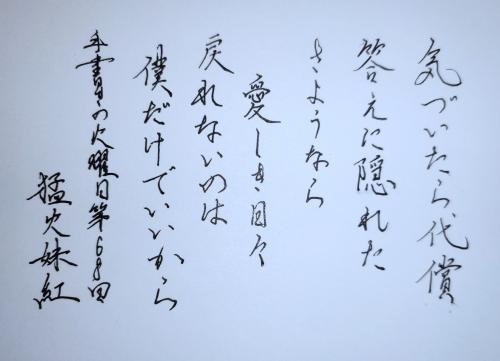 気づいたら代償
答えに隠れた
さようなら
愛しき日々
戻れないのは
僕だけでいいから
手書きの火曜日第68回
猛火妹紅